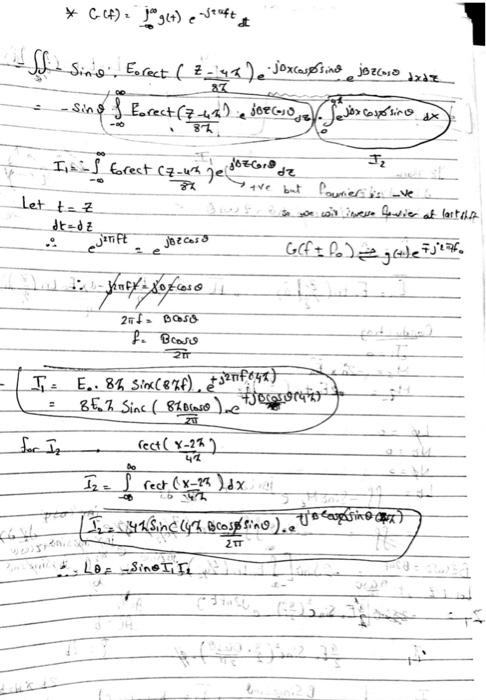 * G(f) = ∫_{-∞}^{∞} g(t) e^{-j2πft} dt
-∬ - Sinθ . E₀rect ( (z-4λ)/8λ ) e^{-jβxcosφsinθ} e^{jβzcosθ} dxdz
= - Sinθ ∫_{-∞}^{∞} E₀rect ( (z-4λ)/8λ ) . e^{jβzcosθ} dz . ∫_0^{4λ} e^{jβxcosφsinθ} dx
I₂
I₁ = -∫_{-∞}^{∞} E₀rect ( (z-4λ)/8λ ) e^{jβzcosθ} dz
+ve but fourier is -ve
Let t = z
so we will inverse fourier at last
dt = dz
∴ e^{j2πft} = e^{jβzcosθ}
G(f ± f₀) ⇌ g(t) e^{∓j2πtf₀}
∴ j2πfz = jβzcosθ
2πf = βcosθ
f = βcosθ/2π
I₁ = E₀ . 8λ Sinc(8λf) . e^{+j2πf(4λ)}
= 8E₀λ Sinc ( 8λβcosθ/2π ) . e^{+jβcosθ(4λ)}
for I₂ rect( (x-2λ)/4λ )
I₂ = ∫_{-∞}^{∞} rect ( (x-2λ)/4λ ) dx
I₂ = 4λ Sinc (4λ βcosφsinθ/2π) . e^{+jβcosφsinθ(2λ)}
∴ Lθ = -Sinθ I₁ I₂